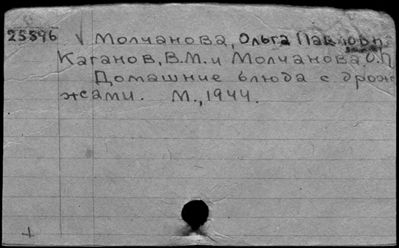 25596 √ Молчанова, Ольга Павловн.
Каганов, В.М. и Молчанова, О.П.
Домашние блюда с дрож-
жами. М., 1944.